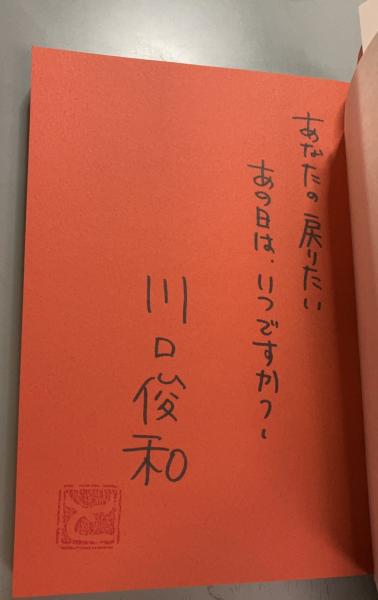 あなたの戻りたい
あの日は、いつですか？
川口俊和
と